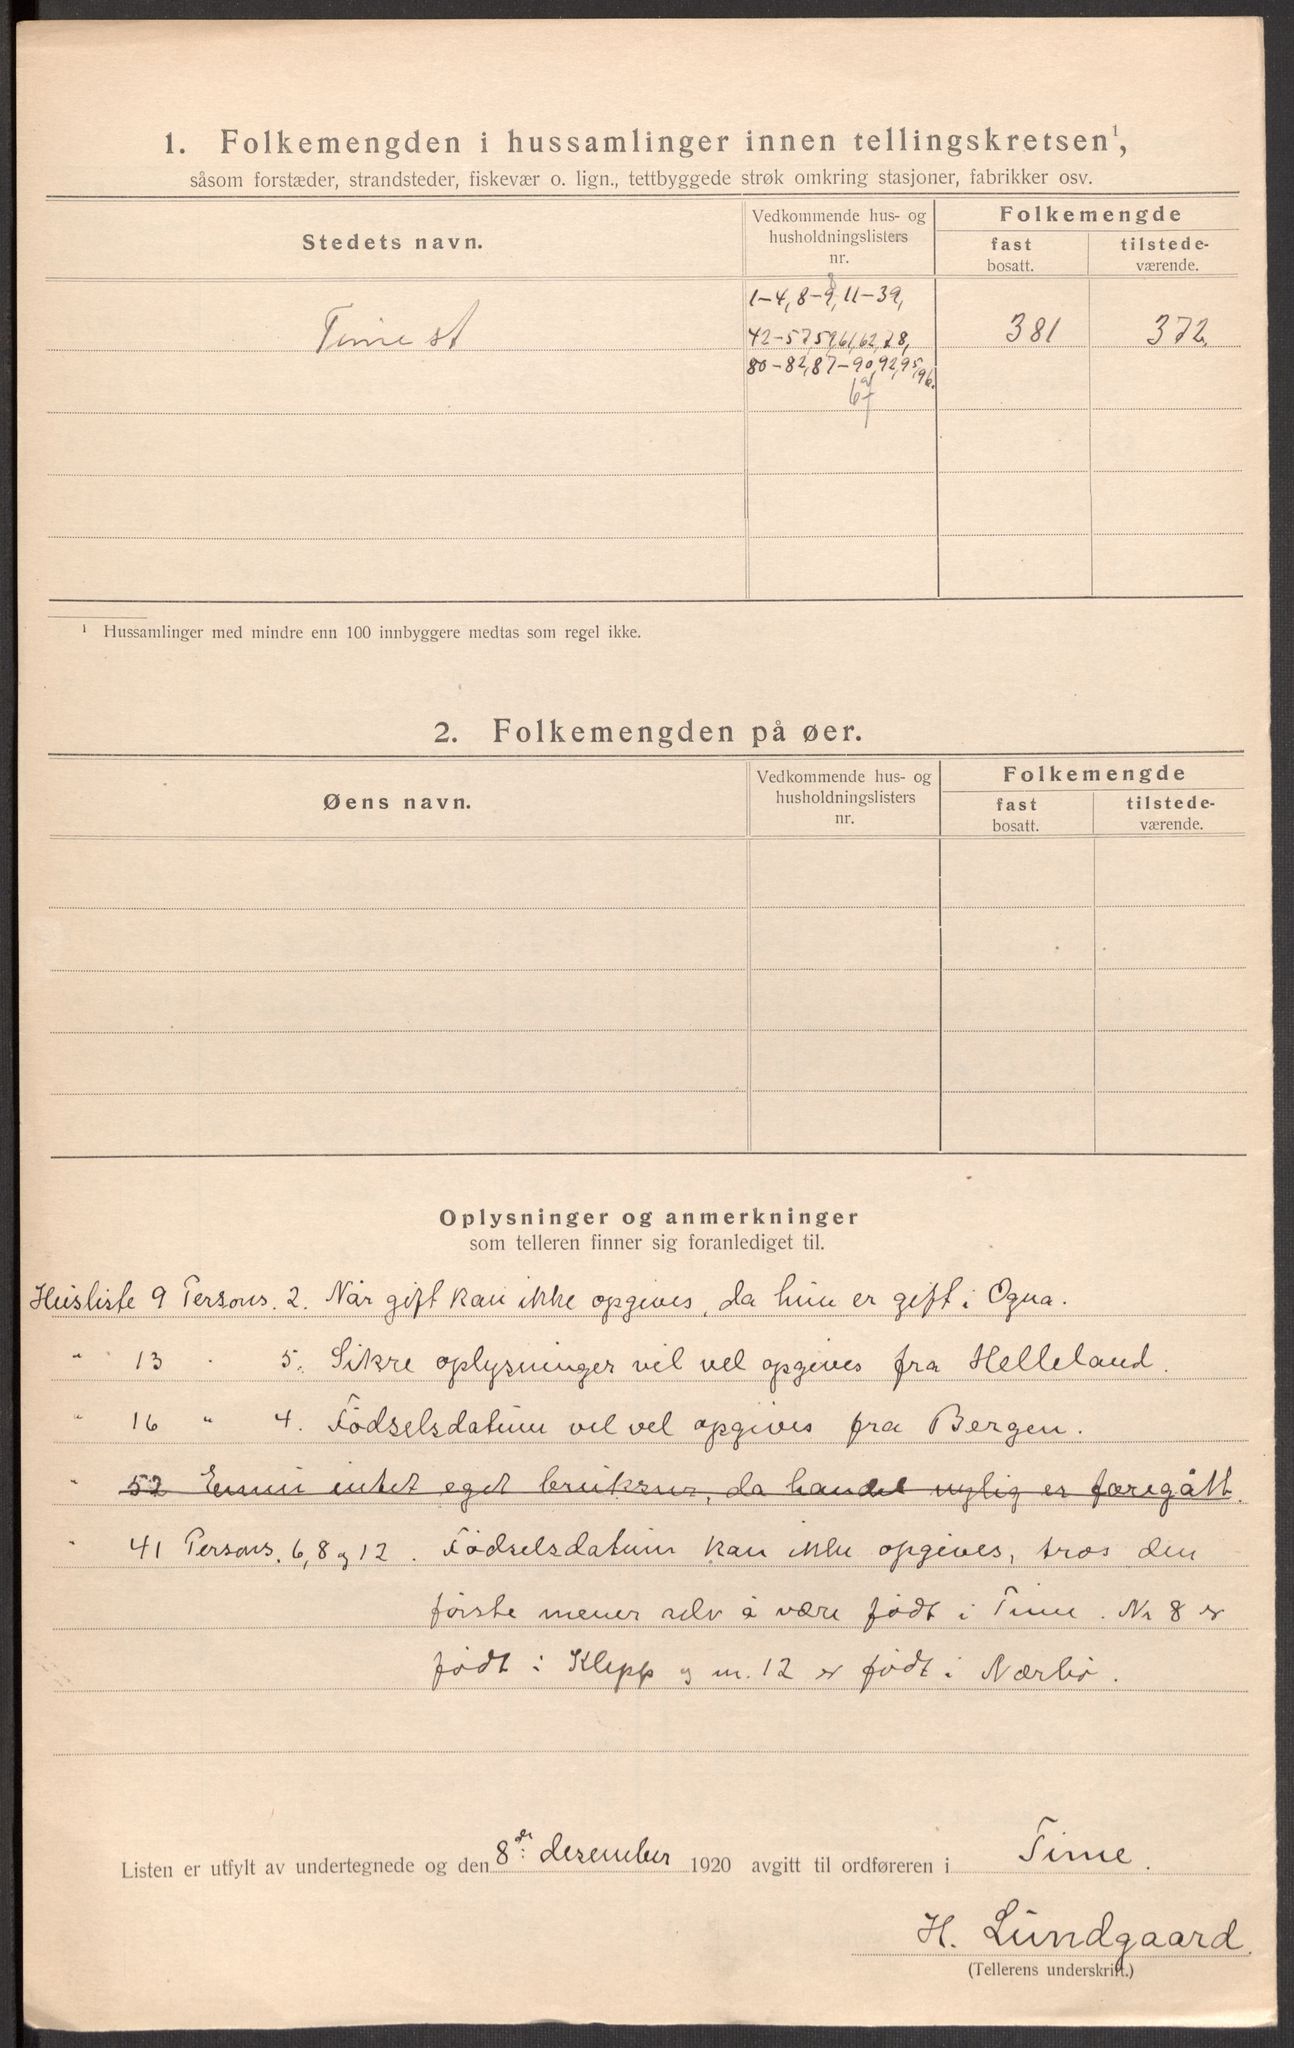 1. Folkemengden i hussamlinger innen tellingskretsen¹,
såsom forstæder, strandsteder, fiskevær o. lign., tettbyggede strøk omkring stasjoner, fabrikker osv.
Stedets navn.
Vedkommende hus- og
husholdningslisters
nr.
Folkemengde
fast
bosatt.
tilstede-
værende.
Time st
1-4, 8-9, 11-39,
42-57, 59, 61, 62, 78,
80-82, 87-90, 92, 95, 96.
67
381
372.
¹ Hussamlinger med mindre enn 100 innbyggere medtas som regel ikke.
2. Folkemengden på øer.
Øens navn.
Vedkommende hus- og
husholdningslisters
nr.
Folkemengde
fast
bosatt.
tilstede-
værende.
Oplysninger og anmerkninger
som telleren finner sig foranlediget til.
Husliste 9 Persons. 2. Når gift kan ikke opgives, da hun er gift i Ogna.
" 13 " 5. Sikre oplysninger vil vel opgives fra Helleland.
" 16 " 4. Födselsdatum vil vel opgives fra Bergen.
" 52 intet eget bruksnr, da handel nylig er foregått.
" 41 Persons. 6, 8 og 12. Födselsdatum kan ikke opgives, tros den
første mener selv å være født i Time. Nr 8 er
født i Klepp og nr. 12 er født i Nærbø.
Listen er utfylt av undertegnede og den 8de desember 1920 avgitt til ordføreren i Time.
H. Lundgaard.
(Tellerens underskrift.)